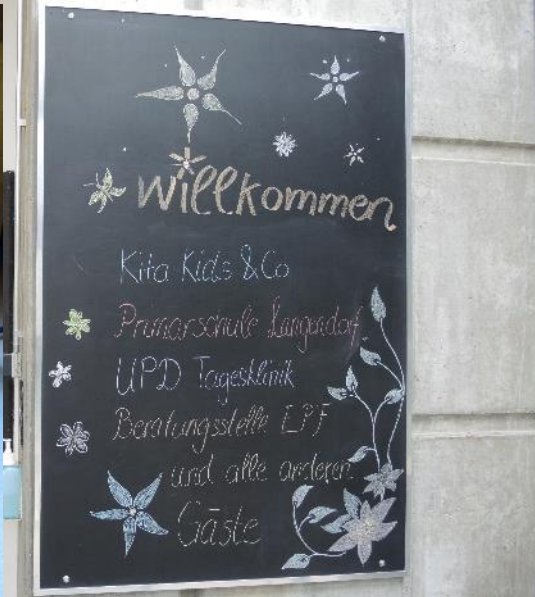 Willkommen
Kita Kids & Co
Primarschule Langendorf
UPD Tagesklinik
Beratungsstelle EPF
und alle anderen
Gäste